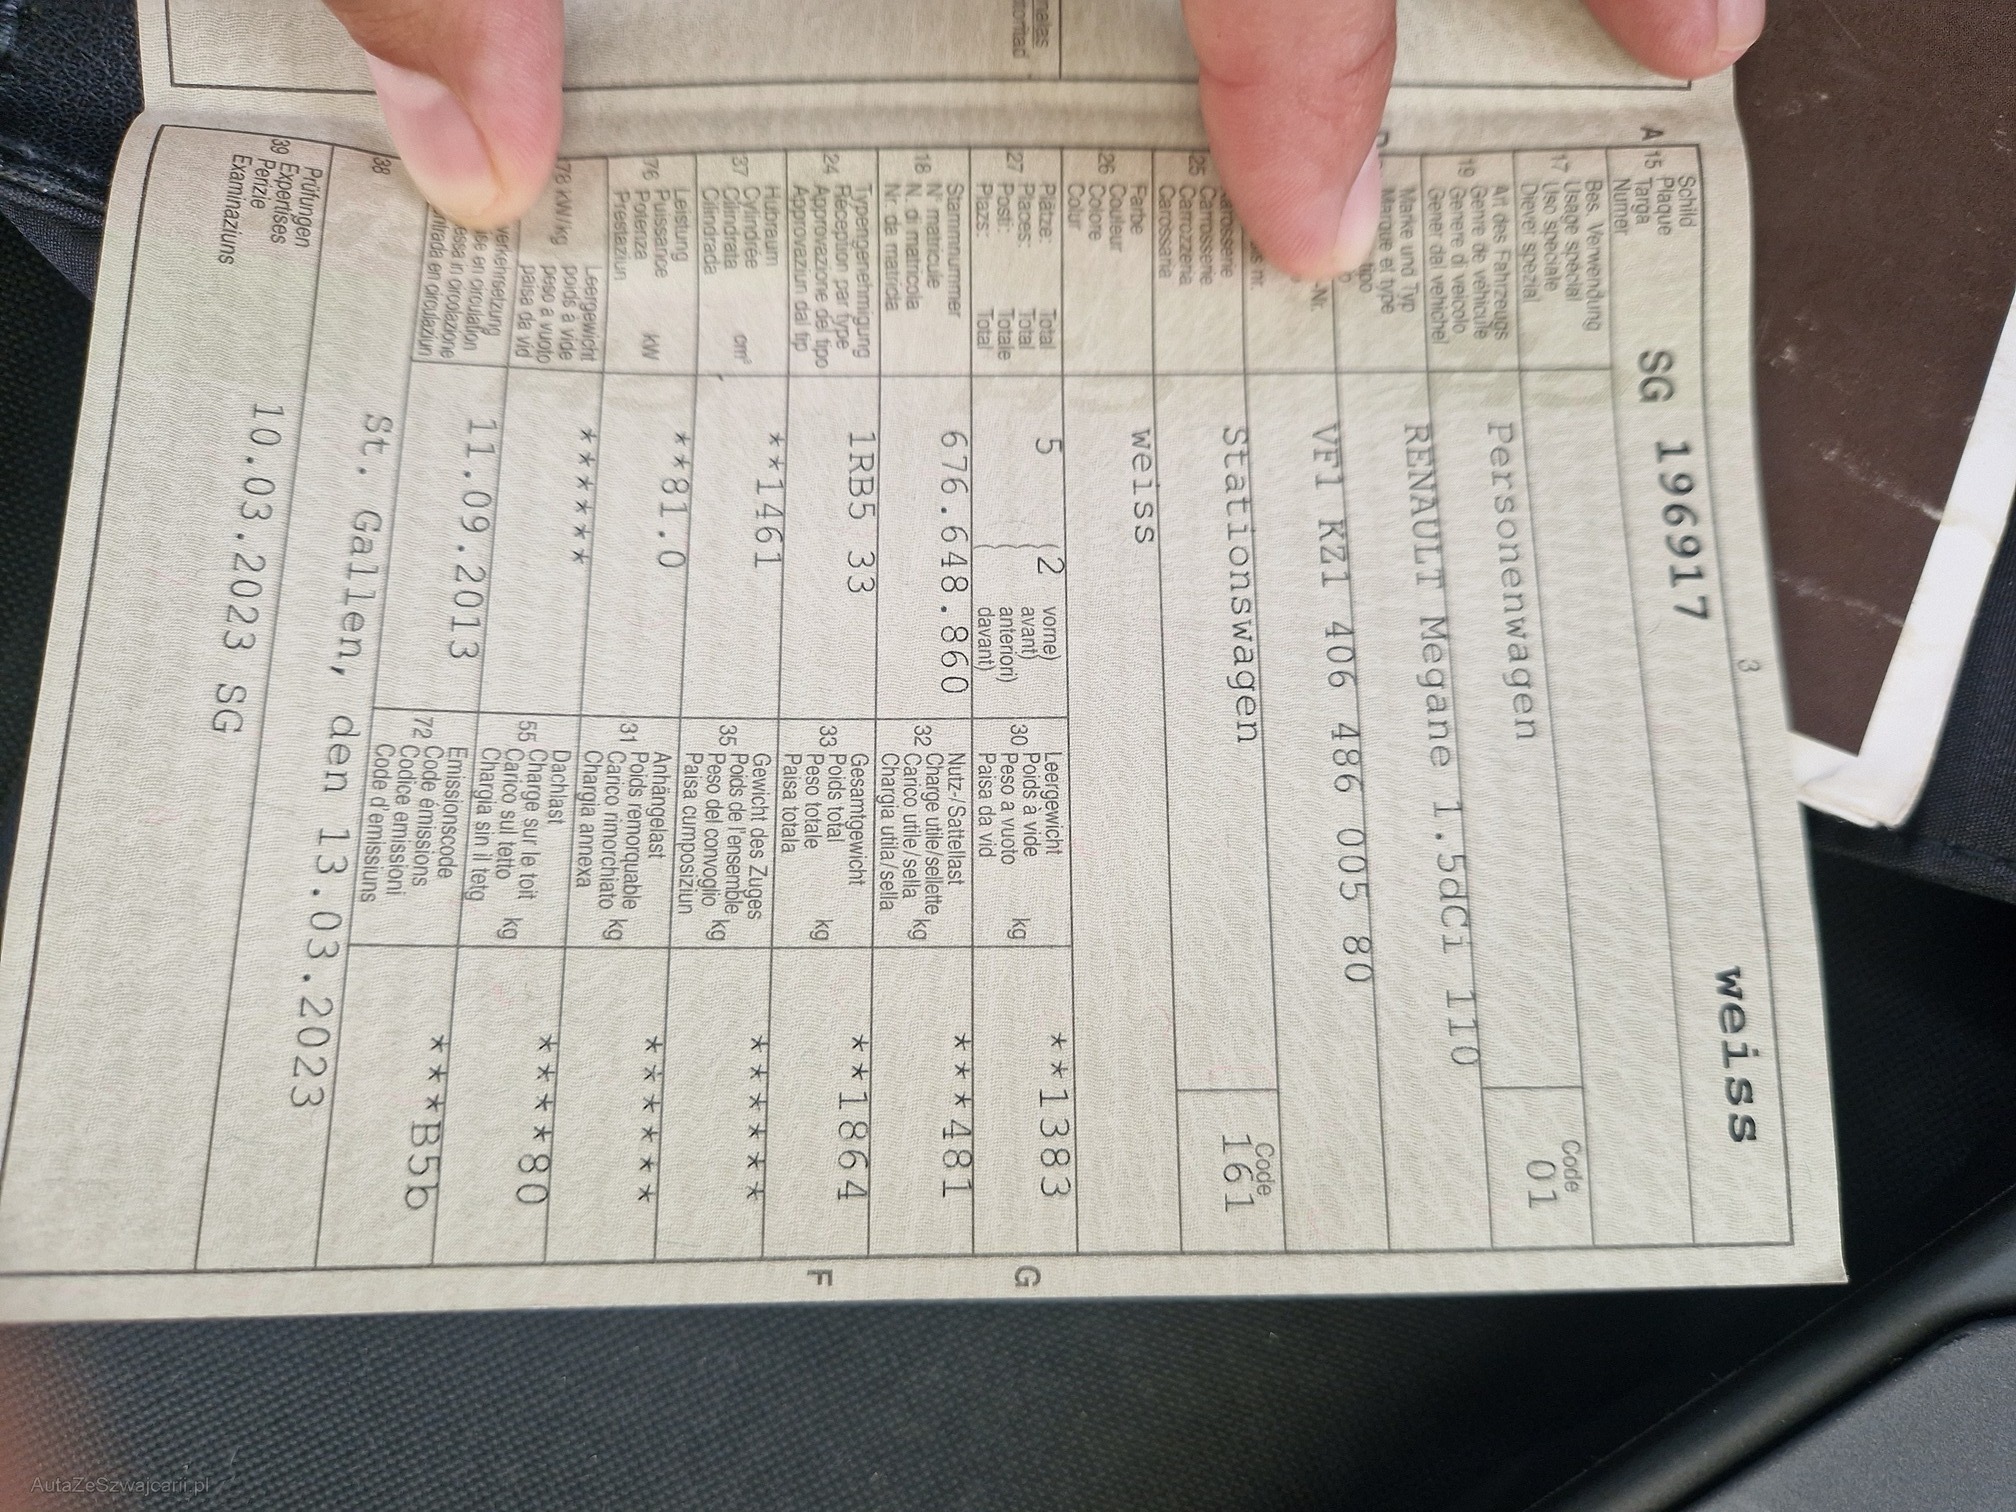 3
weiss
Schild
A 15 Plaque
Targa
Numer
SG 196917
Bes. Verwendung
17 Usage spécial
Uso speciale
Diever spezial
Art des Fahrzeugs
19 Genre de véhicule
Genere di veicolo
Gener dal vehichel
Personenwagen
Code
01
Marke und Typ
Marque et type
tipo
RENAULT Megane 1.5dCi 110
-Nr.
VF1 KZ1 406 486 005 80
is nr.
Karosserie
25 Carrosserie
Carrozzeria
Carossaria
Stationswagen
Code
161
Farbe
26 Couleur
Colore
Colur
weiss
Plätze: Total
27 Places: Total
Posti: Totale
Plazs: Total
5 (2 vorne)
avant)
anteriori)
davant)
Leergewicht
30 Poids à vide
Peso a vuoto kg
Paisa da vid
**1383
G
Stammnummer
18 N° matricule
N. di matricola
Nr. da matricla
676.648.860
Nutz-/Sattellast
32 Charge utile/sellette
Carico utile/sella kg
Chargia utila/sella
***481
Typengenehmigung
24 Réception par type
Approvazione del tipo
Approvaziun dal tip
1RB5 33
Gesamtgewicht
33 Poids total
Peso totale kg
Paisa totala
**1864
F
Hubraum
37 Cylindrée cm³
Cilindrata
Cilindrada
**1461
Gewicht des Zuges
35 Poids de l'ensemble
Peso del convoglio kg
Paisa cumposiziun
******
Leistung
76 Puissance
Potenza kW
Prestaziun
**81.0
Anhängelast
31 Poids remorquable
Carico rimorchiato kg
Chargia annexa
******
Leergewicht
78 kW/kg poids à vide
peso a vuoto
paisa da vid
*****
Dachlast
55 Charge sur le toit
Carico sul tetto kg
Chargia sin il tetg
****80
verkehrsetzung
en circulation
essa in circolazione
ntrada en circulaziun
11.09.2013
Emissionscode
72 Code émissions
Codice emissioni
Code d'emissiuns
***B5b
38
St. Gallen, den 13.03.2023
Prüfungen
39 Expertises
Perizie
Examinaziuns
10.03.2023 SG
AutaZeSzwajcarii.pl